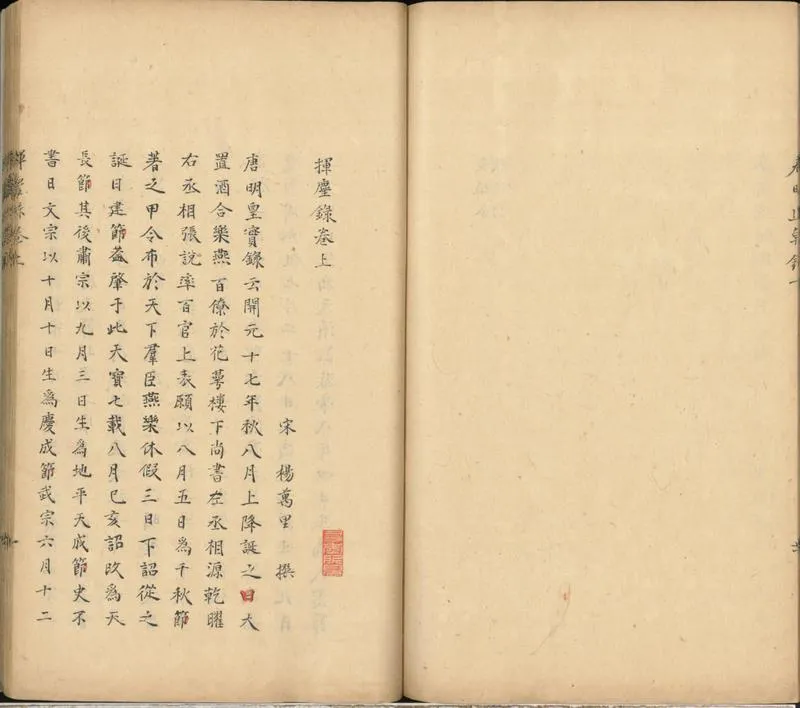 揮麈錄卷上
宋楊萬里撰
唐明皇實錄云開元十七年秋八月上降誕之日大
置酒合樂燕百僚於花萼樓下尚書左丞相源乾曜
右丞相張說率百官上表願以八月五日為千秋節
著之甲令布於天下羣臣燕樂休假三日下詔從之
誕日建節葢肇于此天寶七載八月己亥詔改為天
長節其後肅宗以九月三日生為地平天成節史不
書日文宗以十月十日生為慶成節武宗六月十二